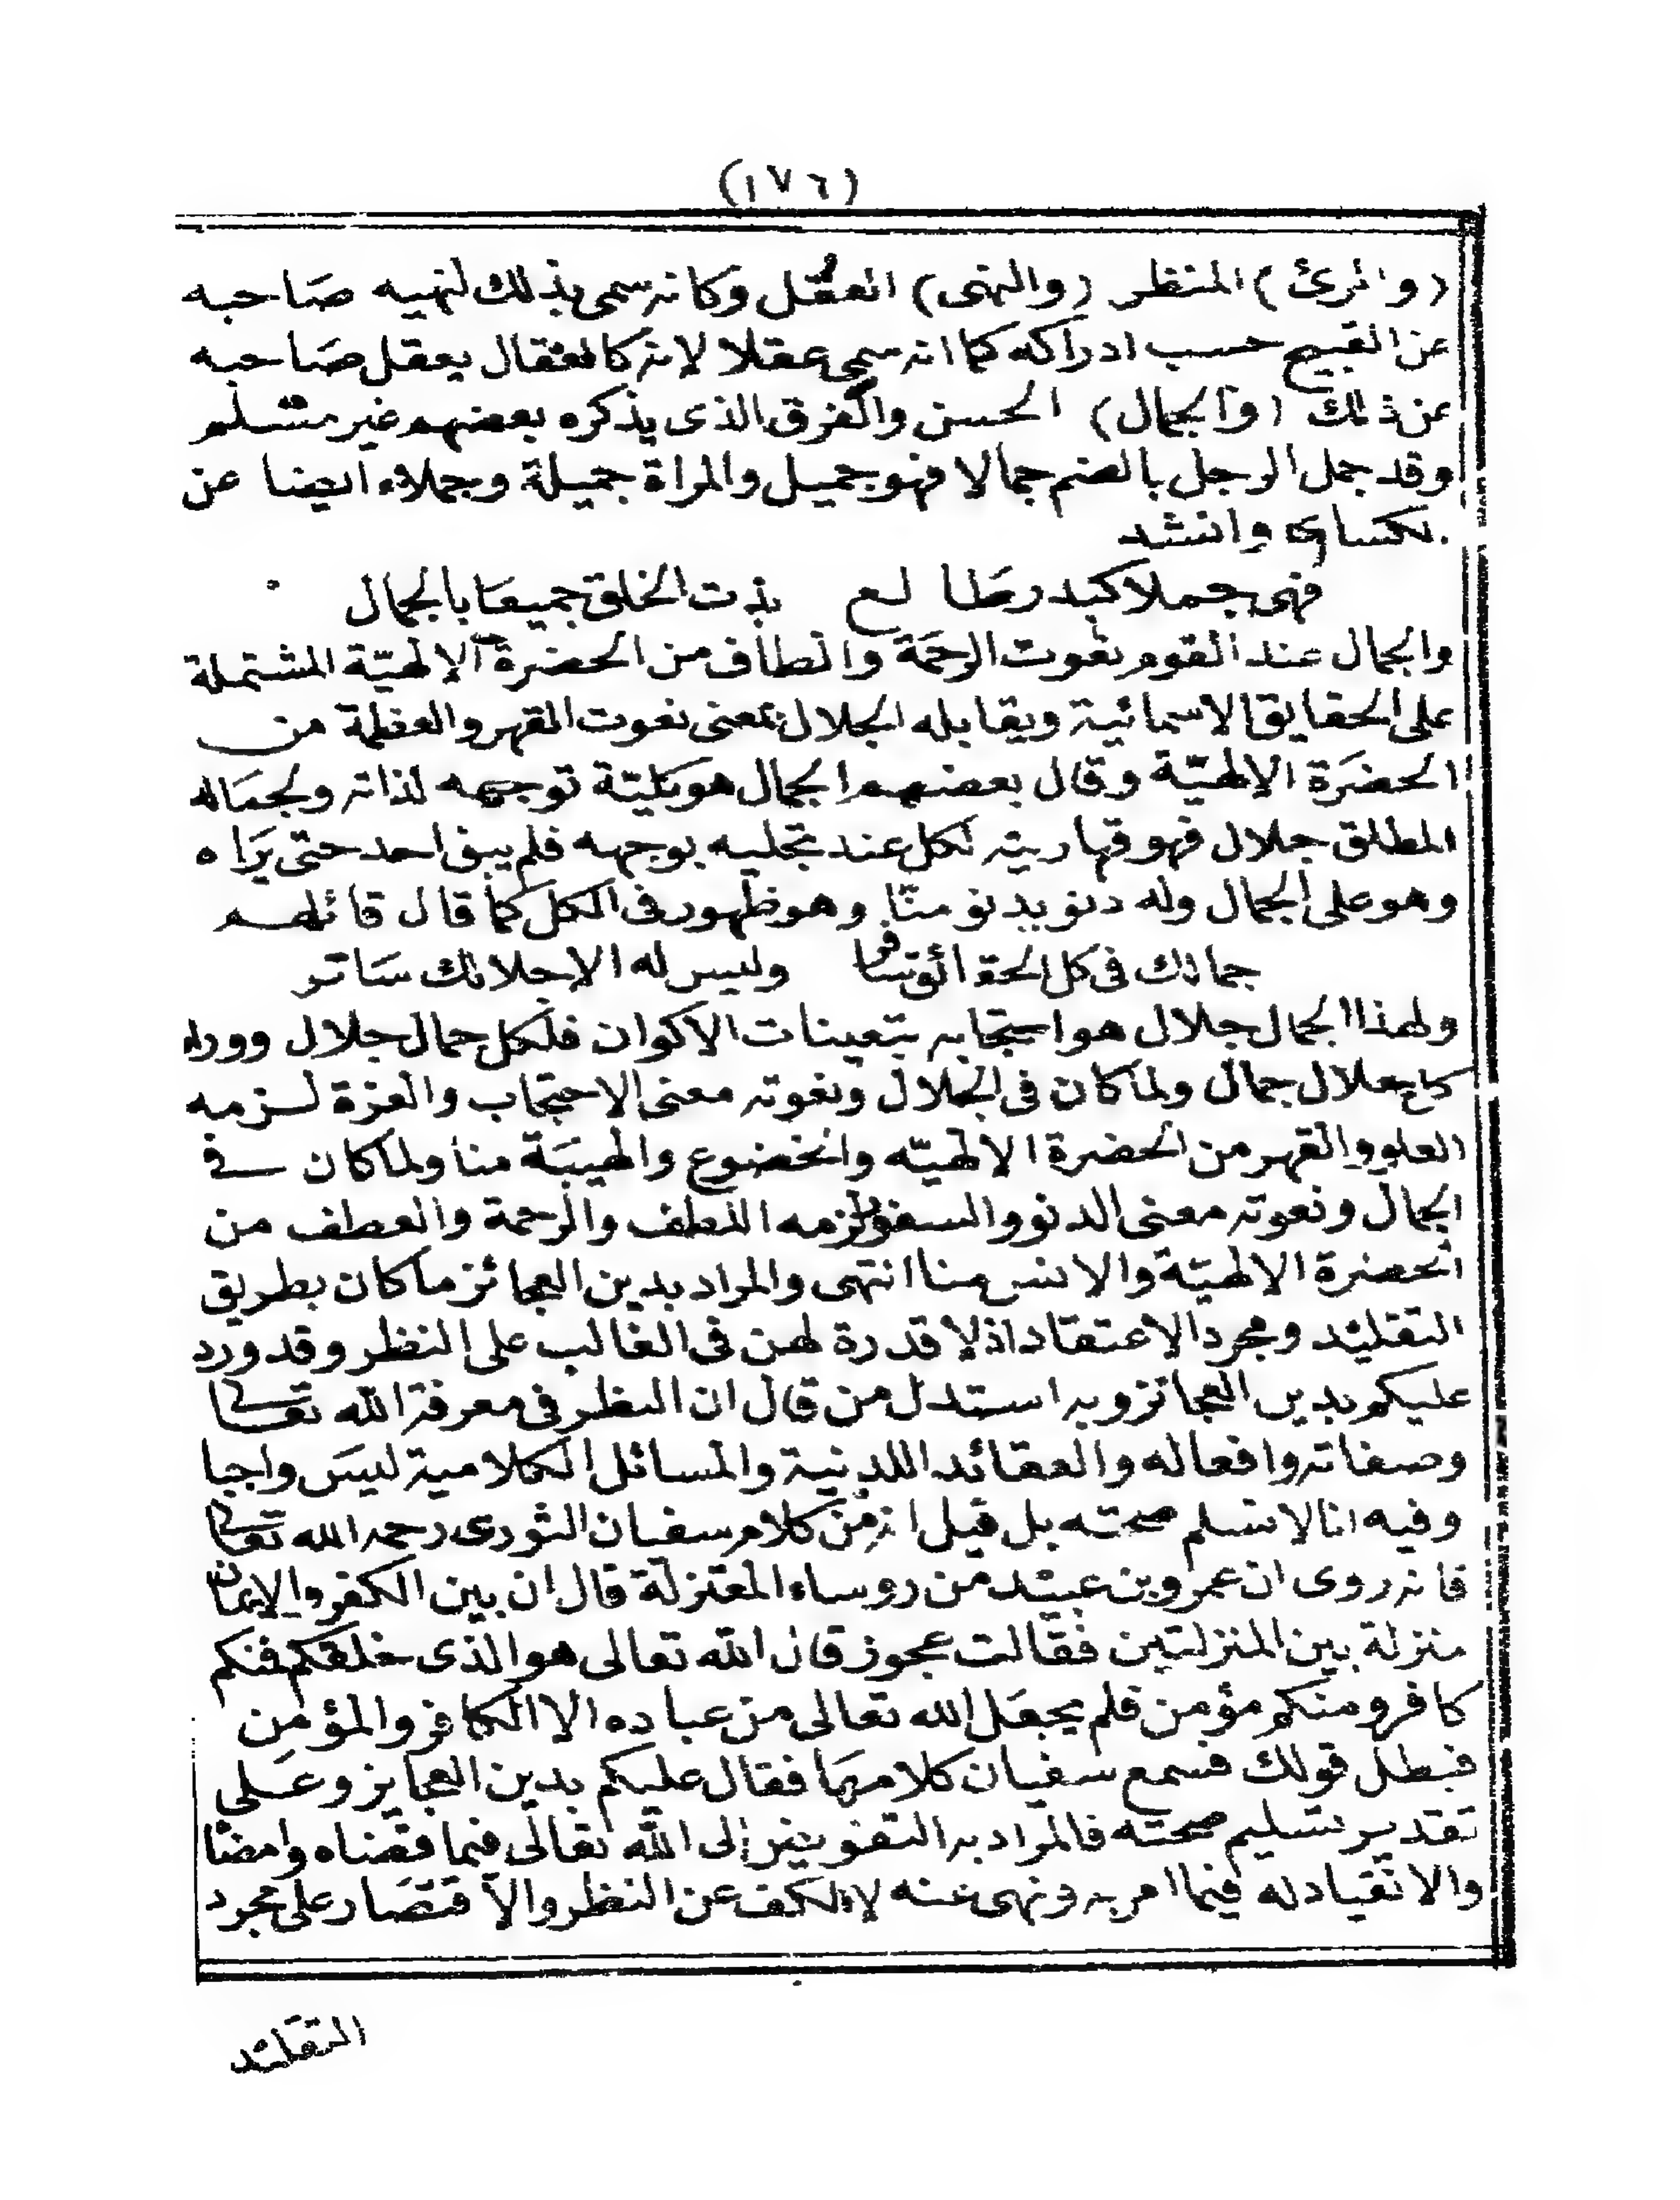 (١٧٦)
(والمرئ) المنظر (والنهى) العقل وكانه سمى بذلك لنهيه صاحبه
عن القبيح حسب ادراكه كما انه سمى عقلا لانه كالعقال يعقل صاحبه
عن ذلك (والجمال) الحسن والفرق الذى يذكره بعضهم غير مسلم
وقد جمل الرجل بالضم جمالا فهو جميل والمراة جميلة وجملاء ايضا عن
لكساى وانشد
فهى جملا كبدر طالع بذت الخلق جميعا بالجمال
والجمال عند القوم نعوت الرحمة والطاف من الحضرة الالهيّة المشتملة
على الحقايق الاسمائية ويقابله الجلال بمعنى نعوت القهر والعظمة من
الحضرة الالهيّة وقال بعضهم الجمال هو كليّة توجهه لذاته ولجماله
المطلق جلال فهو قهاريته لكل عند تجليه بوجهه فلم يبق احد حتى يراه
وهو على الجمال وله دنو يدنو منّا وهو ظهور فى الكل كما قال قائلهم
جمالك فى كل الحقائق سافر وليس له الا جلالك ساتر
ولهذا الجمال جلال هو احتجابه بتعينات الاكوان فلكل جمال جلال ووراء
كل جلال جمال ولما كان فى الجلال ونعوته معنى الاحتجاب والعزة لزمه
العلو والقهر من الحضرة الالهيّه والخضوع والهيبة منا ولما كان فى
الجمال ونعوته معنى الدنو والسفور لزمه اللطف والرحمة والعطف من
الحضرة الالهيّة والانس منا انتهى والمراد بدين العجائز ما كان بطريق
التقليد ومجرد الاعتقاد اذ لا قدرة لهن فى الغالب على النظر وقد ورد
عليكم بدين العجائز وبه استدل من قال ان النظر فى معرفة الله تعالى
وصفاته وافعاله والعقائد اللدينية والمسائل الكلامية ليس واجبا
وفيه انا لا نسلم صحته بل قيل انه من كلام سفيان الثورى رحمه الله تعالى
فانه روى ان عمرو بن عبيد من روساء المعتزلة قال ان بين الكفر والايمان
منزلة بين المنزلتين فقالت عجوز قال الله تعالى هو الذى خلقكم فمنكم
كافر ومنكم مؤمن فلم يجعل الله تعالى من عباده الا الكافر والمؤمن
فبطل قولك فسمع سفيان كلامها فقال عليكم بدين العجايز وعلى
تقدير تسليم صحته فالمراد به التفويض الى الله تعالى فيما قضاه وامضا
والانقياد له فيما امر به ونهى عنه لا الكف عن النظر والاقتصار على مجرد
التقليد